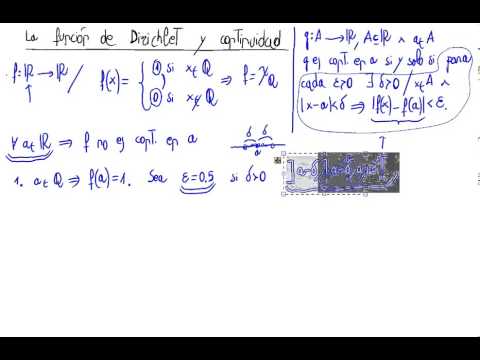 La función de Dirichlet y continuidad
f: ℝ → ℝ / f(x) = { 1 si x ∈ ℚ
0 si x ∉ ℚ ⇒ f = χ_ℚ
g: A → ℝ, A ⊆ ℝ ∧ a ∈ A
g es cont. en a si y solo si para
cada ε>0 ∃ δ>0 / x ∈ A ∧
|x-a|<δ ⇒ |f(x)-f(a)|<ε.
∀ a ∈ ℝ ⇒ f no es cont. en a
δ δ
a
1. a ∈ ℚ ⇒ f(a)=1. Sea ε=0,5 si δ>0
]a-δ,